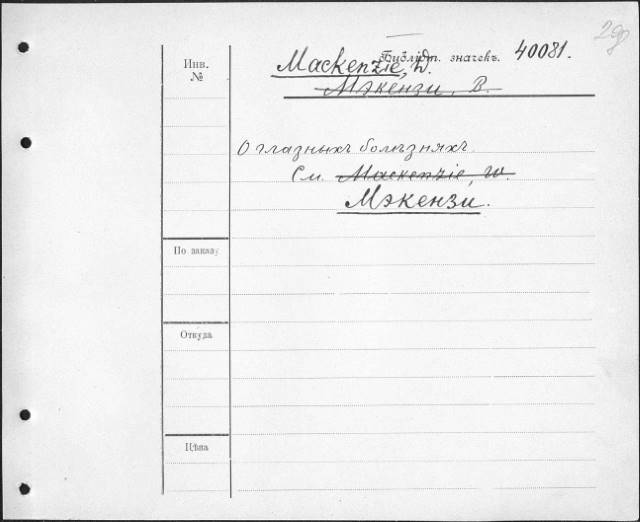 29
Инв.
№
Библіот. значекъ. 40081.
Mackenzie, W.
Мэкензи, В.
О глазныхъ болѣзняхъ.
См. Mackenzie, W.
Мэкензи.
По заказу
Откуда
Цѣна